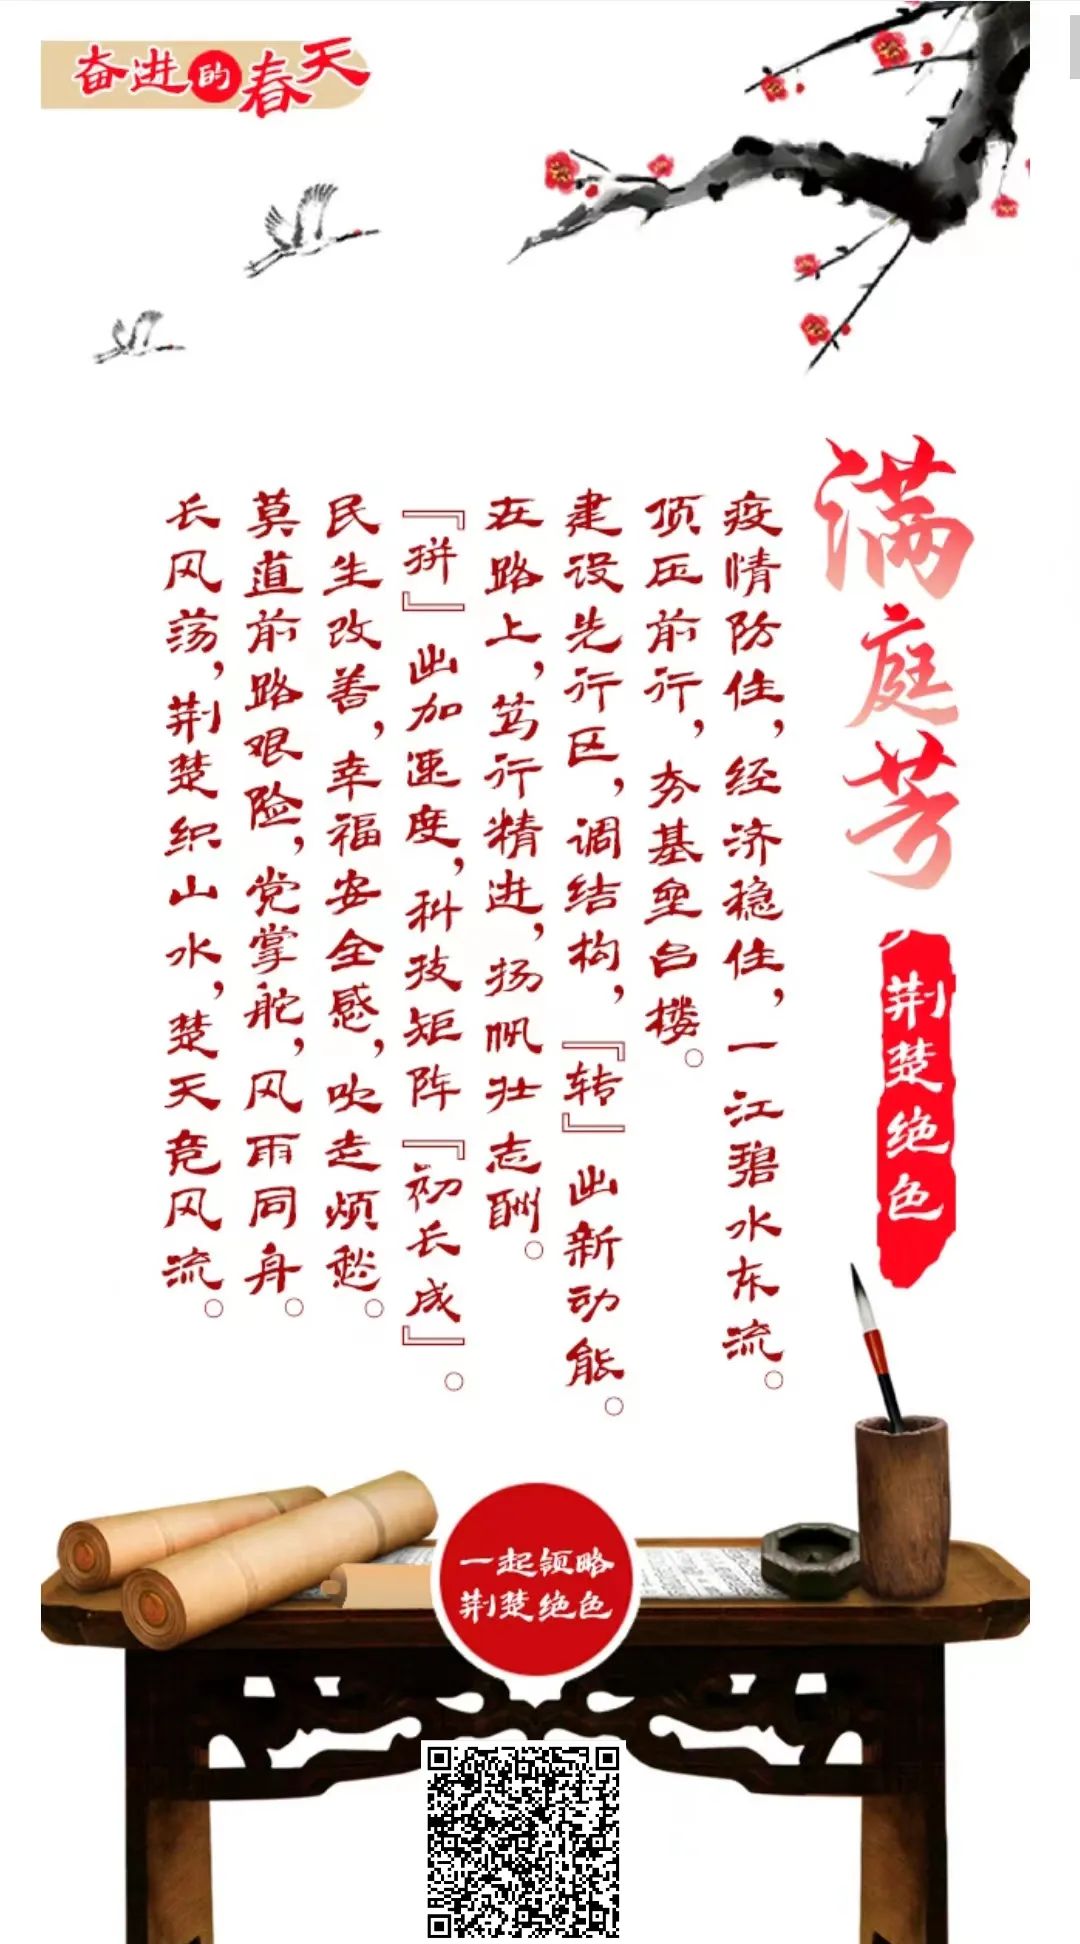 奋进的春天
满庭芳
荆楚绝色
疫情防住，经济稳住，一江碧水东流。
顶压前行，夯基垒台楼。
建设先行区，调结构，『转』出新动能。
在路上，笃行精进，扬帆壮志酬。
『拼』出加速度，科技矩阵『初长成』。
民生改善，幸福安全感，吹走烦愁。
莫道前路艰险，党掌舵，风雨同舟。
长风荡，荆楚织山水，楚天竞风流。
一起领略
荆楚绝色